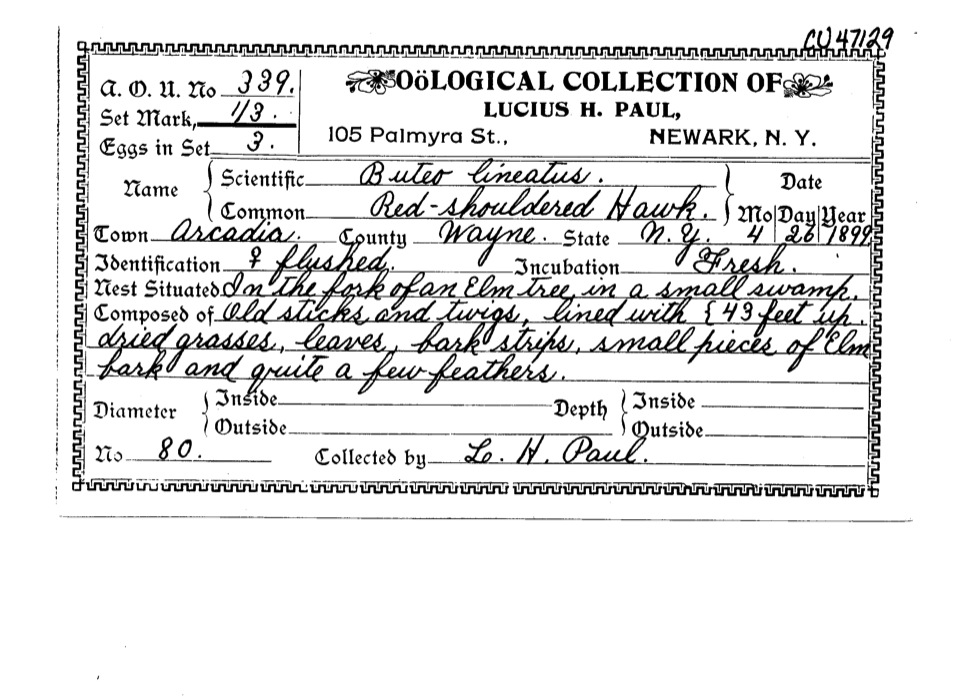 CU47129
A. O. U. No 339.
OöLOGICAL COLLECTION OF
Set Mark, 1/3.
LUCIUS H. PAUL,
Eggs in Set 3.
105 Palmyra St., NEWARK, N. Y.
Name Scientific Buteo lineatus. Date
Common Red-shouldered Hawk. Mo Day Year
Town Arcadia. County Wayne. State N.Y. 4 26 1899
Identification ♀ flushed. Incubation Fresh.
Nest Situated In the fork of an Elm tree, in a small swamp.
Composed of Old sticks and twigs, lined with { 43 feet up.
dried grasses, leaves, bark strips, small pieces of Elm
bark and quite a few feathers.
Diameter Inside Depth Inside
Outside Outside
No 80. Collected by L. H. Paul.